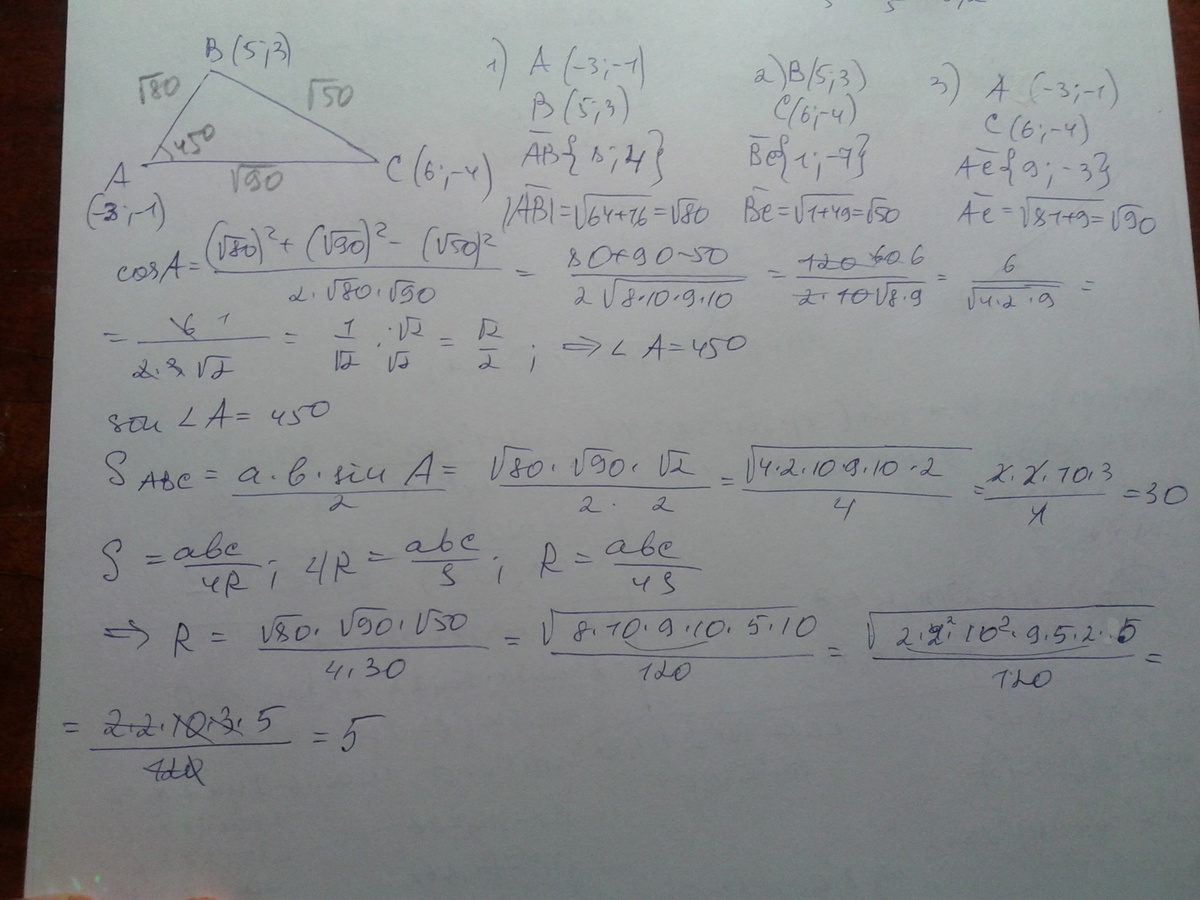 B (5;3)
√80
√50
45°
A
(-3;-1)
√90
C (6;-4)
1) A (-3;-1)
B (5;3)
AB{8;4}
|AB|=√64+16=√80
2) B(5;3)
C(6;-4)
BC{1;-7}
BC=√1+49=√50
3) A (-3;-1)
C(6;-4)
AC{9;-3}
AC=√81+9=√90
cosA= (√80)²+(√90)²-(√50)² / 2·√80·√90 = 80+90-50 / 2√8·10·9·10 = 120 60·6 / 2·10√8·9 = 6 / √4·2·9 =
= 6 1 / 2·3√2 = 1/√2 · √2/√2 = √2/2 ; ⇒ ∠A=45°
sin ∠A= 45°
S ABC = a·b·sin A / 2 = √80·√90·√2 / 2·2 = √4·2·10·9·10·2 / 4 = 2·2·10·3 / 4 =30
S = abc/4R ; 4R= abc/S ; R= abc/4S
⇒ R= √80·√90·√50 / 4·30 = √8·10·9·10·5·10 / 120 = √2·2²·10²·9·5·2·5 / 120 =
= 2·2·10·3·5 / 120 = 5